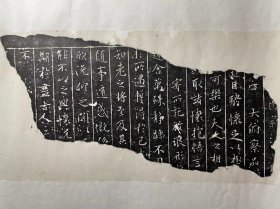 大俯察品
目騁懷足以極
可樂也夫人之相
取諸懷抱悟言
寄所託放浪形
舍萬殊靜躁不
於所遇暫得於己
知老之將至及其
隨事遷感慨係
欣俛仰之間以
能不以之興懷
期於盡古人云
不